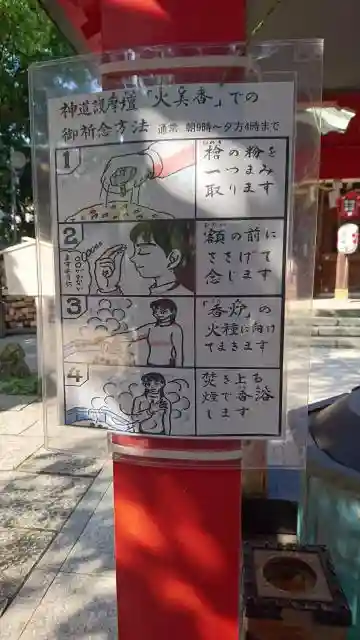 神道護摩壇「火美香」での
御祈念方法 通常 朝9時〜夕方4時まで
1
桧の粉を
一つまみ
取ります
2
額の前に
ささげて
念じます
3
「香炉」の
火種に向け
てまきます
4
焚き上る
煙で香浴
します